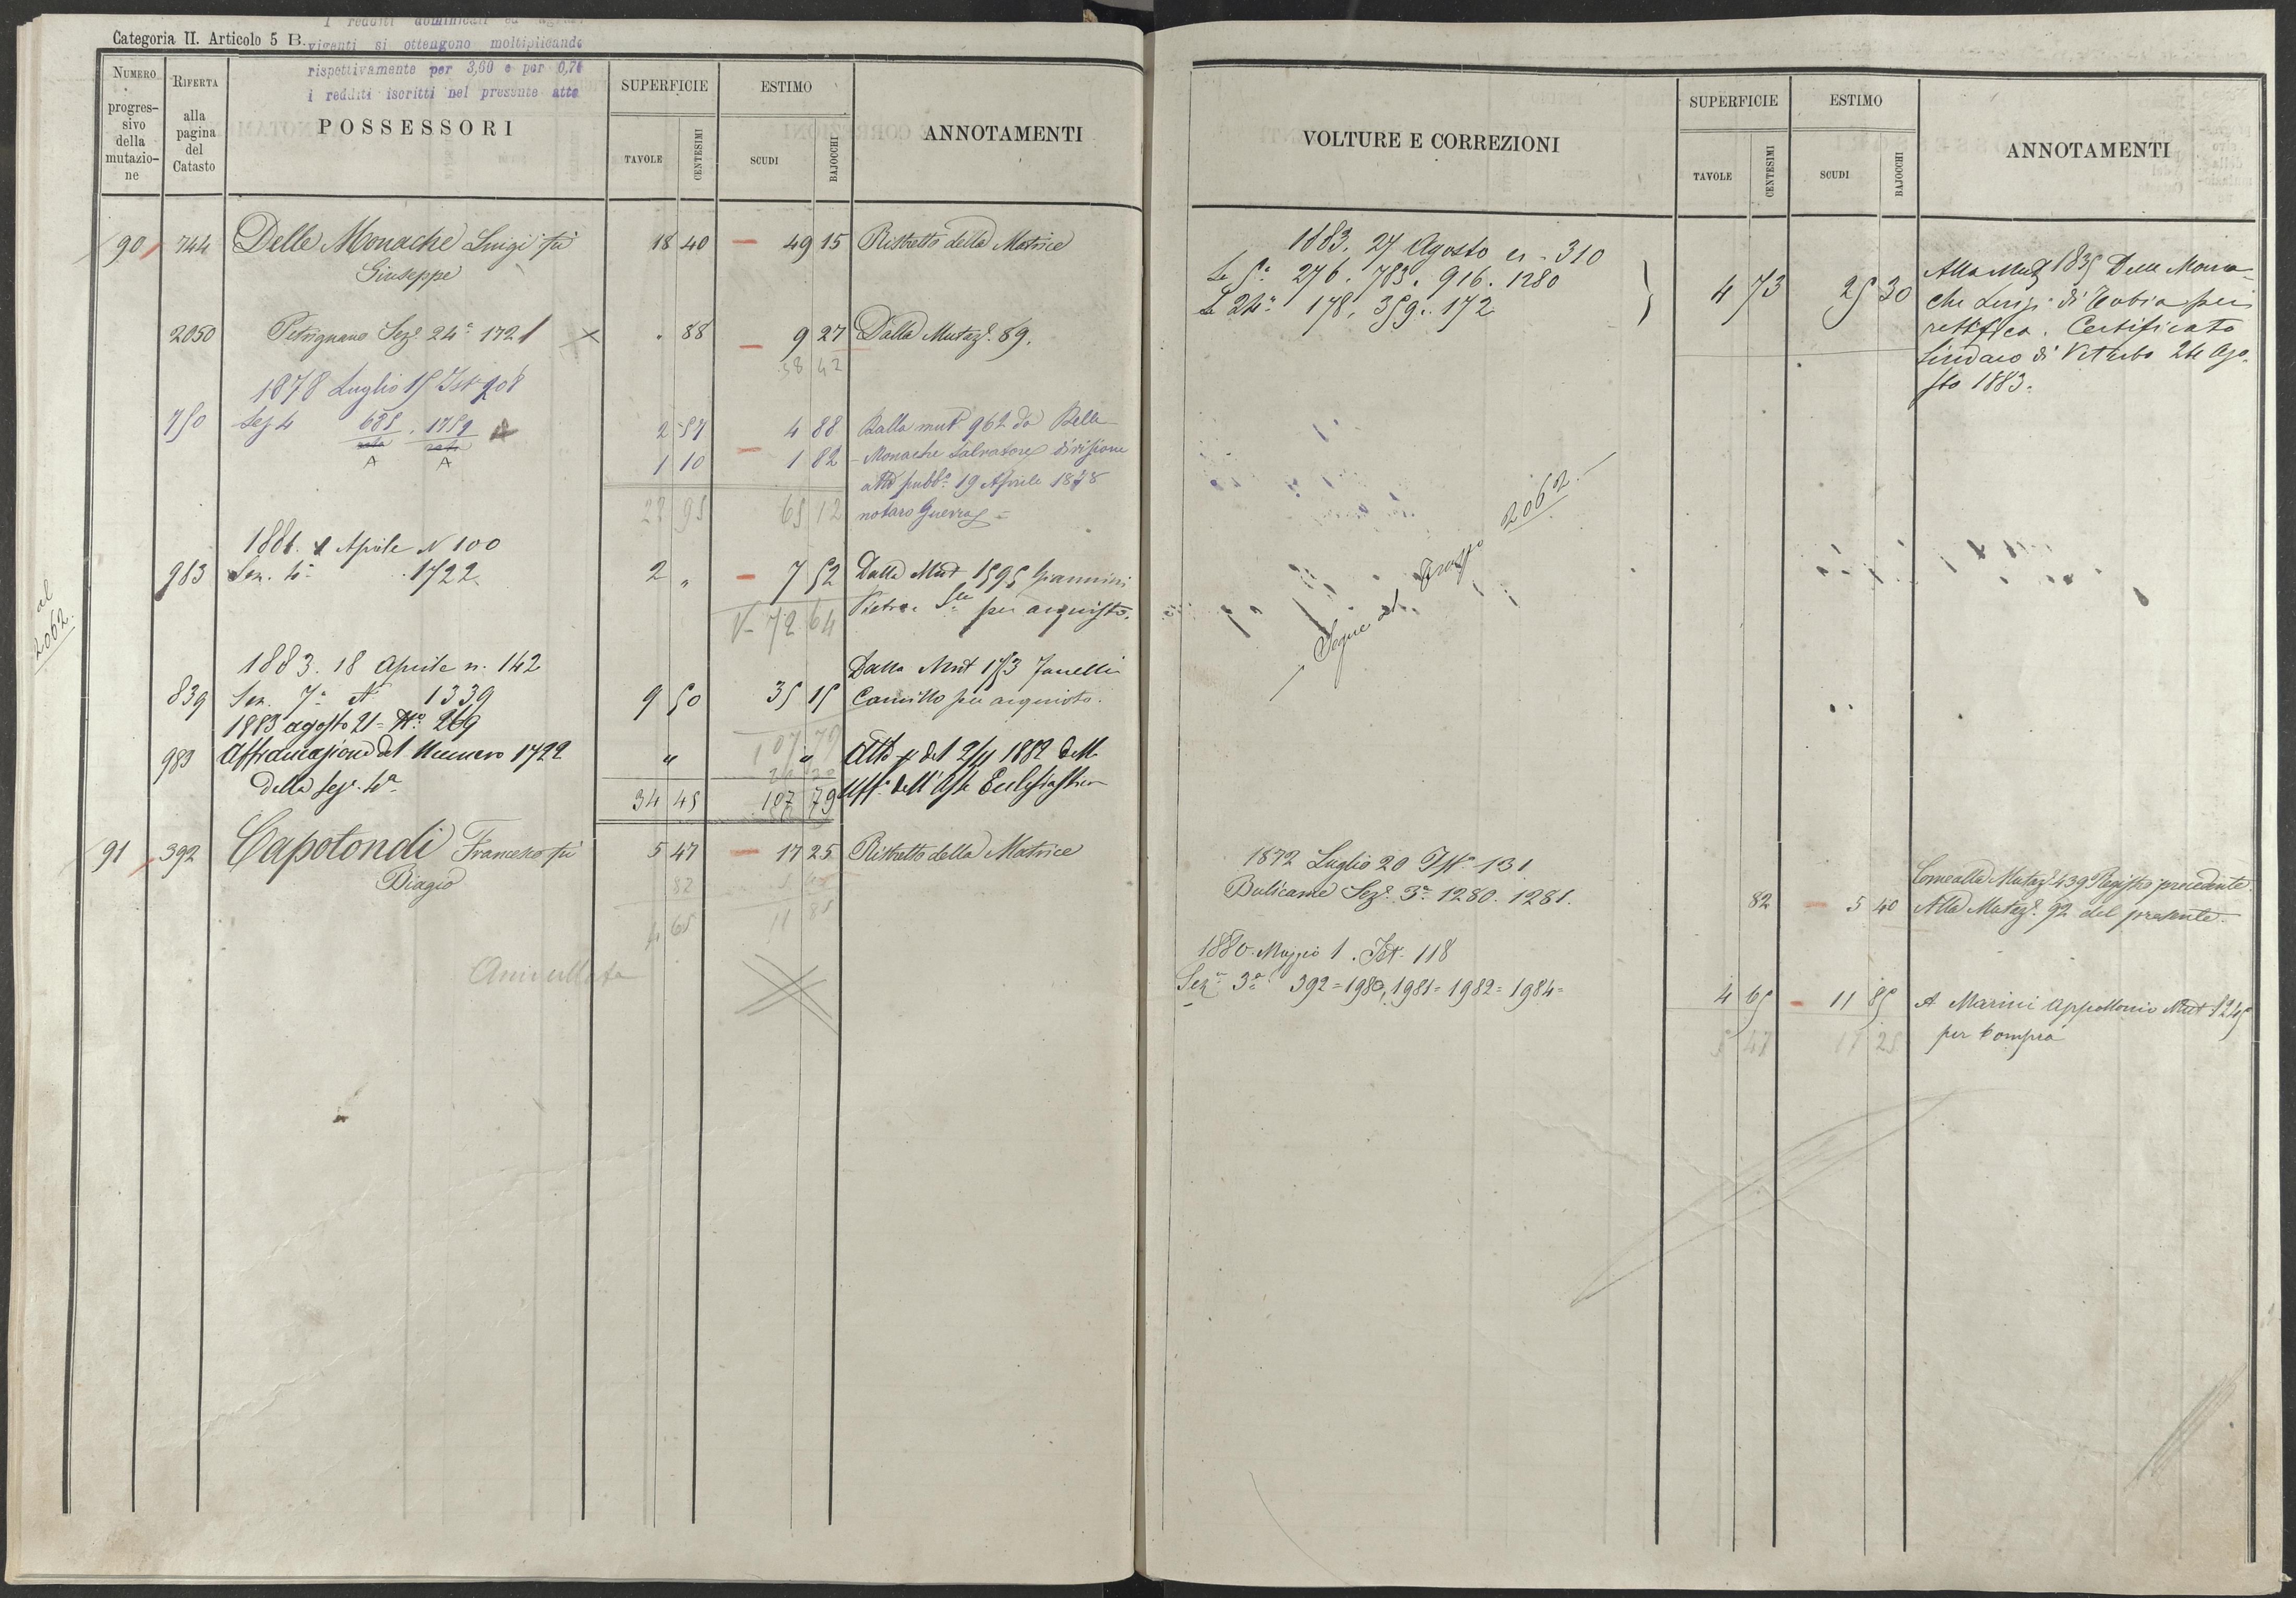 Categoria II. Articolo 5 B.
I redditi dominicali ed
vigenti si ottengono moltiplicando
rispettivamente per 3,60 e per 0,76
i redditi iscritti nel presente atto
NUMERO progres- sivo della mutazio- ne
RIFERTA alla pagina del Catasto
POSSESSORI
SUPERFICIE
TAVOLE CENTESIMI
ESTIMO
SCUDI BAJOCCHI
ANNOTAMENTI
90 744 Delle Monache Luigi fu 18 40 49 15 Ristretto della Matrice
Giuseppe
2050 Petrignano Sezᵉ 24ª 1721 × . 88 9 27 Dalla Mutazᵉ 89.
38 42
1878 Luglio 15 Ist 208
750 Sez 4 688 . 1759 2 57 4 88 Dalla mutᵉ 962 da Delle
A A 1 10 1 82 Monache Salvatore divisione
atto pubbº 19 Aprile 1878
22 95 65 12 notaro Guerra =
1881. 1 Aprile N 100
983 Sez. 4ª 1722 2 „ 7 52 Dalla Mut 1595 Giannini
V- 72 64 Pietro e per acquisto.
al
2062.
1883. 18 Aprile n. 142
Dalla Mut 173 Janelli
839 Sez. 7ª Nº 1339 9 50 35 15 Camillo per acquisto.
1883 agosto 21 = Nº 269
107 79
983 Affrancazione del Numero 1722 „ „ Atto del 2/11 1882 dell
della Sezᵉ 4ª
34 45 107 79 Uffº dell' Asse Ecclesiastico
91 392 Capotondi Francesco fu 5 47 17 25 Ristretto della Matrice
Biagio
82 5 40
4 65 11 85
Annullata
VOLTURE E CORREZIONI
SUPERFICIE
TAVOLE CENTESIMI
ESTIMO
SCUDI BAJOCCHI
ANNOTAMENTI
1883. 27 Agosto n. 310
Se 5ª 276. 783. 916. 1280 4 73 25 30 Alla Mutᵉ 1835 Delle Mona-
Se 24ª 178. 359. 172 che Luigi di Tobia per
rettifica. Certificato
Sindaco di Viterbo 24 Ago-
sto 1883.
Segue al 2062.
1872 Luglio 20 Istª 131
Bulicame Sezᵉ 3ª 1280. 1281. 82 5 40 Come alla Mutazᵉ 439 Registro precedente.
Alla Mutazᵉ 92 del presente.
1880. Maggio 1. Ist. 118
Sezⁿ 3ª 392 = 1980, 1981 = 1982 = 1984 = 4 65 11 85 A Marini Appollonio Mut 1245
5 47 17 25 per Compra